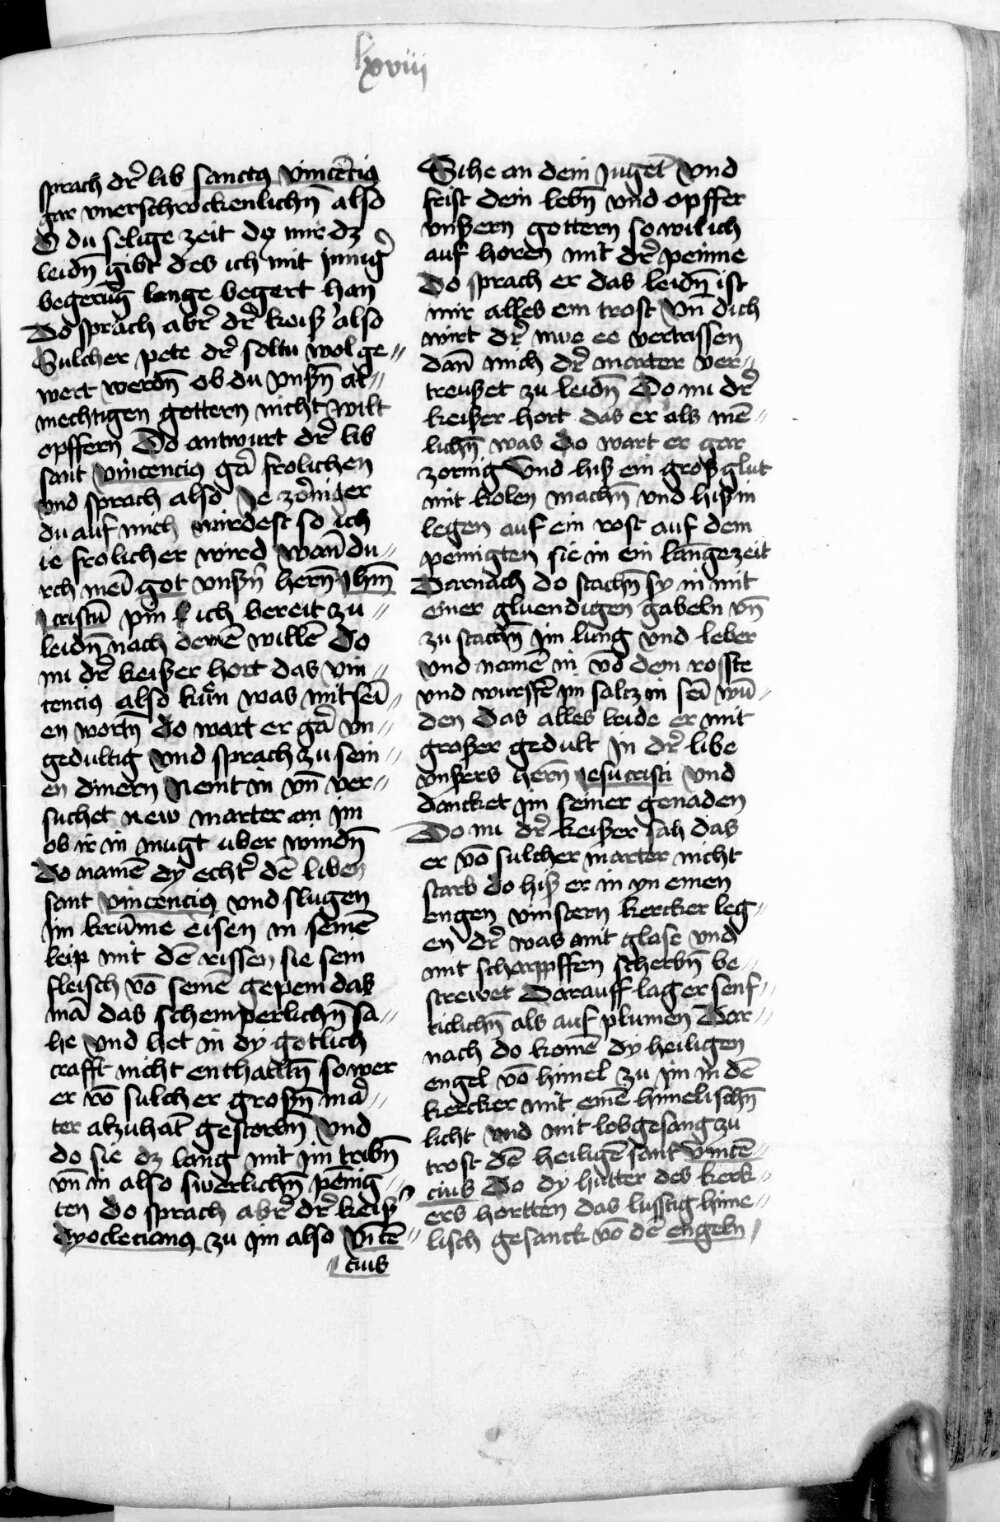 lxviii
sprach dr̄ lib sanctus vincēcius
gar vnerschrockenlichn̄ also
O du selige zeit dy mir dz
leidn̄ gibt des ich mit jnnig̾
begerūg lange begert han
Do sprach abr̄ dr̄ keiß̾ also
Sulcher pete dr̄ soltu wol ge〃
wert werdn̄ ob du vnßn̄ al〃
mechtigen gottern nicht wilt
opffern Do antwurt dr̄ lib
sant vincencius gā frolichen
vnd sprach also Ye zorniger
du auf mich wirdest so ich
ie frolicher wird wan̄ du〃
rch mei̅ got vnßn̄ hern̄ Jhm̄
cristū pin ich bereit zu〃
leidn̄ nach deinē willē Do
nu dr̄ keißer hort das vin〃
cencius also kün was mit sei̅〃
en wortn̄ do wart er gā vn〃
gedultig vnd sprach zu sein〃
en dinern Nemt in vn̄ ver〃
suchet new marter an jm
ob ir in mugt vber windn̄
Do namē dy echt̾ dē liben
sant vincencius vnd slugen
jm krūme eisen in seinē
leip mit dē rissen sie sein
fleisch vō seinē gepein das
mā das schemperlichn̄ sa〃
he vnd het in dy gotlich
crafft nicht enthaltn̄ so wer
er vō sulcher großn̄ mā〃
ter alzuhāt gestorbn̄ Vnd
do sie dz lang mit jm tribn̄
vn̄ in also swerlichn̄ pēnig〃
ten do sprach abr̄ dr̄ keiß̾
dyoclecianus zu jm also Vi̅cē〃
cius
Sihe an dein jugēt vnd
frist dein lebn̄ vnd opffer
vnßern gottern so wil ich
auf horen mit dr̄ peinne
Do sprach er das leidn̄ ist
mir alles ein trost vn̄ dich
wirt dr̄ mue ee vertrissen
dan̄ mich dr̄ marter ver〃
treußet zu leidn̄ Do nu dr̄
keißer hort das er als mē〃
lichn̄ was do wart er gar
zornig Vnd hiß ein groß glut
mit kolen machn̄ vnd hiß in
legen auf ein rost auf dem
peinigten sie in ein lange zeit
Darnach do stachn̄ sy in mit
einer gluendigen gabeln vn̄
zu stachn̄ jm lung vnd leber
vnd namē in vō dem rosste
vnd wurffē jm saltz in sei̅ wū〃
den Das alles leide er mit
großer gedult in dr̄ libe
vnßers hern̄ Jesu cristi vnd
dancket jm seiner genaden
Do nu dr̄ keißer sah das
er vō sulcher marter nicht
starb do hiß er in yn einen
engen vinstern kercker leg〃
en dr̄ was mit glase vnd
mit scharpffen scherbn̄ be〃
strewet Darauff lag er senf〃
ticlichn̄ als auf plumen Dar〃
nach do komē dy heiligen
engel vō himel zu jm in dē
kercker mit einē himelischn̄
licht vnd mit lobgesang zu
trost dē heiligē sant Vincē〃
cius Do dy hutter des kerk〃
ers hortten das lusstig hime〃
lisch gesanck vō dē engeln